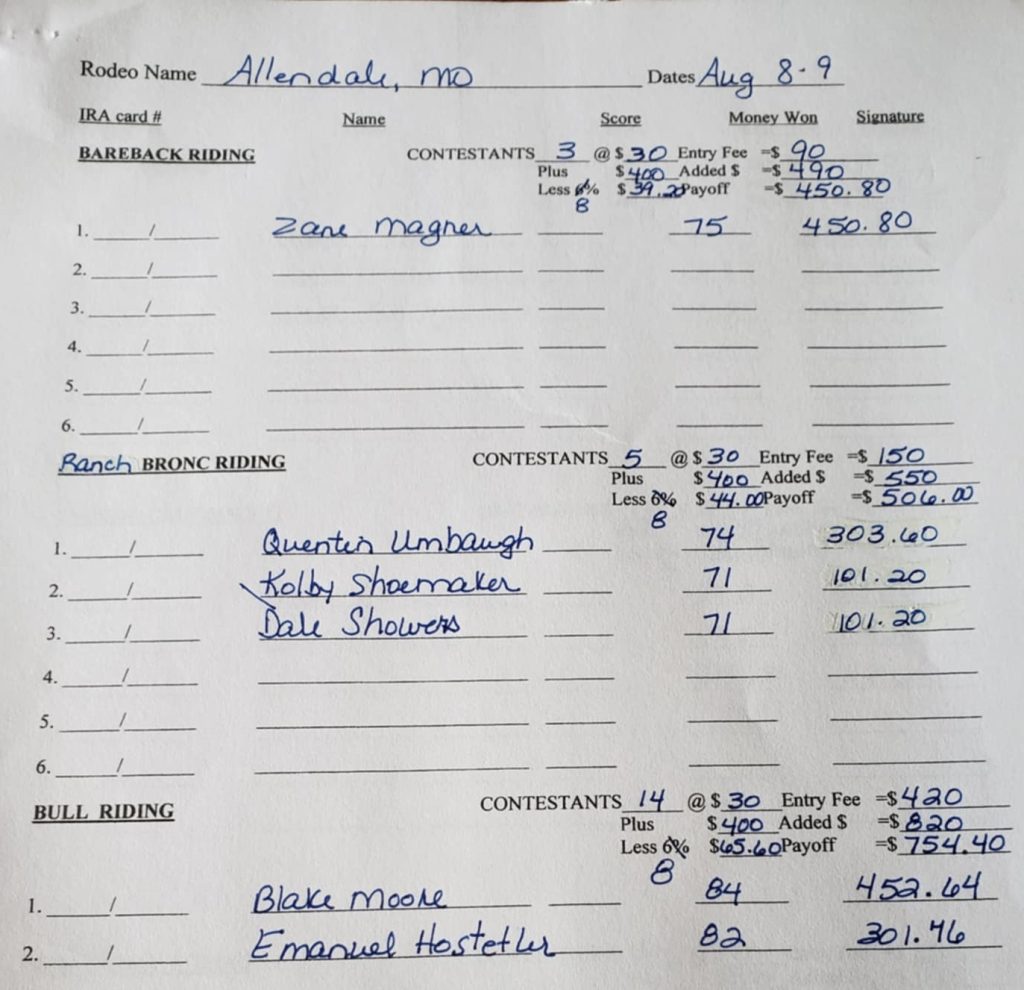 Rodeo Name Allendale, MO Dates Aug 8-9
IRA card # Name Score Money Won Signature
BAREBACK RIDING CONTESTANTS 3 @ $ 30 Entry Fee =$ 90
Plus $ 400 Added $ =$ 490
Less 6% $ 39.20 Payoff =$ 450.80
8
1. / Zane Magner 75 450.80
2. /
3. /
4. /
5. /
6. /
Ranch BRONC RIDING CONTESTANTS 5 @ $ 30 Entry Fee =$ 150
Plus $ 400 Added $ =$ 550
Less 6% $ 44.00 Payoff =$ 506.00
8
1. / Quentin Umbaugh 74 303.60
2. / Kolby Shoemaker 71 101.20
3. / Dale Showers 71 101.20
4. /
5. /
6. /
BULL RIDING CONTESTANTS 14 @ $ 30 Entry Fee =$ 420
Plus $ 400 Added $ =$ 820
Less 6% $ 65.60 Payoff =$ 754.40
8
1. / Blake Moore 84 452.64
2. / Emanuel Hostetler 82 301.76